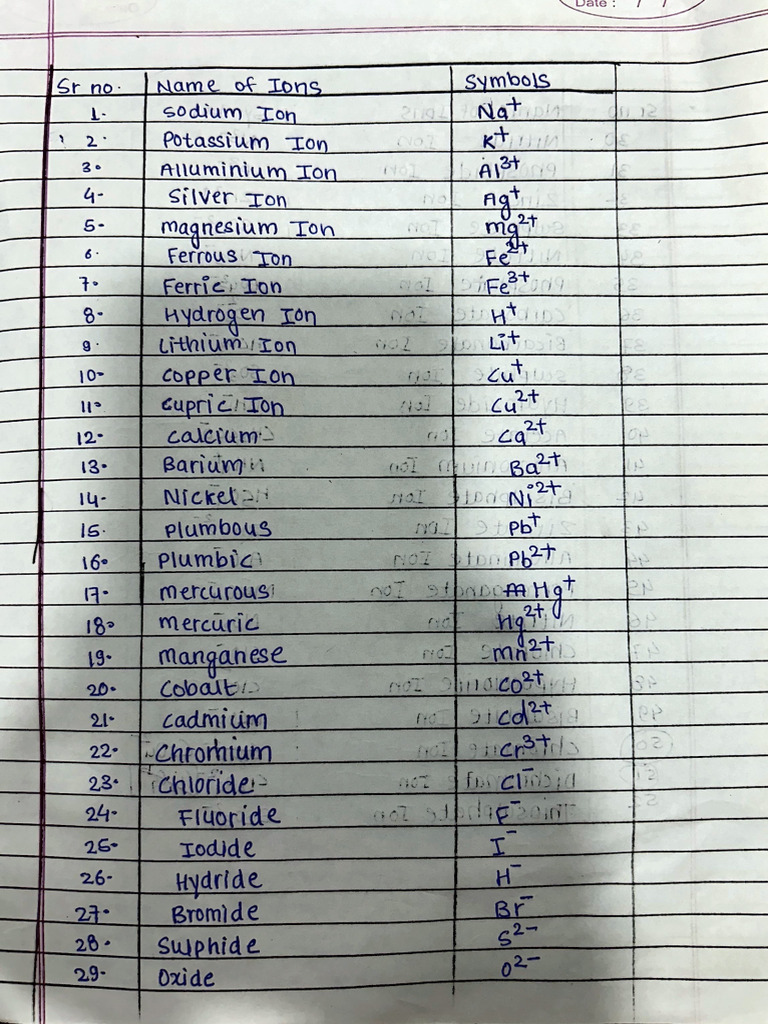 Date : / /
Sr no. Name of Ions Symbols
1. Sodium Ion Na+
2. Potassium Ion K+
3. Alluminium Ion Al3+
4. Silver Ion Ag+
5. magnesium Ion mg2+
6. Ferrous Ion Fe2+
7. Ferric Ion Fe3+
8. Hydrogen Ion H+
9. Lithium Ion Li+
10. Copper Ion Cu+
11. Cupric Ion Cu2+
12. Calcium Ca2+
13. Barium Ba2+
14. Nickel Ni2+
15. Plumbous Pb+
16. Plumbic Pb2+
17. mercurous Hg+
18. mercuric Hg2+
19. manganese mn2+
20. Cobalt CO2+
21. Cadmium Cd2+
22. Chromium Cr3+
23. Chloride Cl-
24. Fluoride F-
25. Iodide I-
26. Hydride H-
27. Bromide Br-
28. Sulphide S2-
29. Oxide O2-